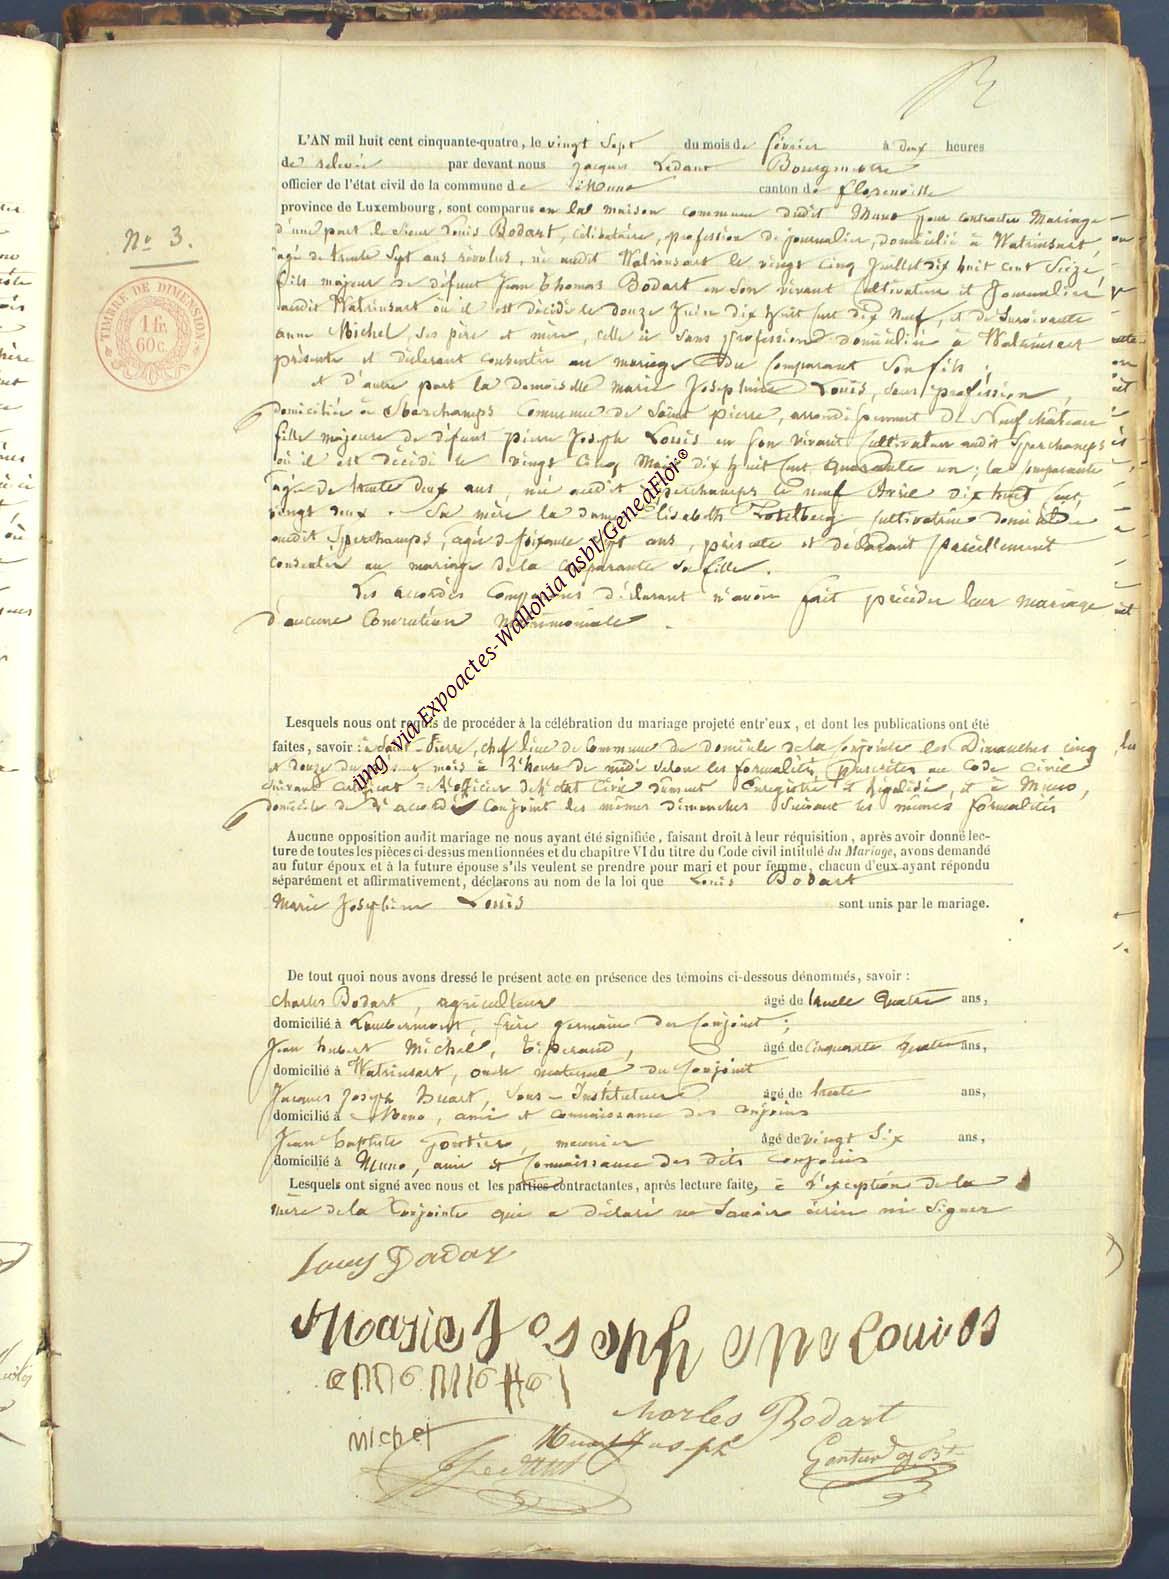 N° 3.
TIMBRE DE DIMENSION
1 fr.
60 c.
L'AN mil huit cent cinquante-quatre, le vingt Sept du mois de février à deux heures
de relevée par devant nous Jacques Ledant Bourgmestre
officier de l'état civil de la commune de Muno canton de florenville
province de Luxembourg, sont comparus en la maison commune dudit Muno pour contracter Mariage
d'une part le Sieur Louis Bodart, célibataire, profession de journalier, domicilié à Watrinsart
âgé de trente Sept ans révolus, né audit Watrinsart le vingt cinq Juillet dix huit cent Seize,
fils majeur de défunt Jean Thomas Bodart en son vivant Cultivateur et Journalier
audit Watrinsart où il est décédé le douze Juin dix huit cent dix Neuf, et de Survivante
anne Michel, ses père et mère, celle ci sans profession domiciliée à Watrinsart
présente et déclarant consentir au mariage du Comparant Son fils ;
et d'autre part la demoiselle marie Joséphine Louis, sans profession,
domiciliée à Sberchamps Commune de Saint pierre, arrondissement de Neufchâteau
fille majeure de défunt pierre Joseph Louis en son vivant Cultivateur audit Sberchamps
où il est décédé le vingt cinq Mai dix huit Cent quarante un ; la comparante
âgée de trente deux ans, née audit Sberchamps le neuf Avril dix huit Cent
vingt deux. Sa mère la dame Elisabeth cultivatrice domiciliée
audit Sberchamps, âgée de soixante Sept ans, présente et déclarant pareillement
consentir au mariage de la comparante sa fille.
Les accordés Comparans déclarant n'avoir fait précéder leur mariage
d'aucune Convention Matrimoniale.
Lesquels nous ont requis de procéder à la célébration du mariage projeté entr'eux, et dont les publications ont été
faites, savoir : à Saint-Pierre, chef lieu de Commune de domicile de la Conjointe les Dimanches cinq
et douze du mois à l'heure de midi selon les formalités prescrites au Code Civil
suivant Certificat de l'officier de l'état Civil dument Enregistré et légalisé, et à Muno,
domicile de l'accordé Conjoint les mêmes dimanches Suivant les mêmes formalités
Aucune opposition audit mariage ne nous ayant été signifiée, faisant droit à leur réquisition, après avoir donné lec-
ture de toutes les pièces ci-dessus mentionnées et du chapitre VI du titre du Code civil intitulé du Mariage, avons demandé
au futur époux et à la future épouse s'ils veulent se prendre pour mari et pour femme, chacun d'eux ayant répondu
séparément et affirmativement, déclarons au nom de la loi que Louis Bodart
Marie Joséphine Louis sont unis par le mariage.
De tout quoi nous avons dressé le présent acte en présence des témoins ci-dessous dénommés, savoir :
Charles Bodart, agriculteur âgé de trente Quatre ans,
domicilié à Lambermont, frère germain du Conjoint ;
Jean hubert Michel, Tisserand, âgé de Cinquante quatre ans,
domicilié à Watrinsart, oncle maternel du Conjoint
Jacques Joseph Huart, Sous-Instituteur âgé de trente ans,
domicilié à Muno, ami et connaissance des conjoins
Jean baptiste Gontier, meunier âgé de vingt Six ans,
domicilié à Muno, ami et Connaissance des dits conjoins
Lesquels ont signé avec nous et les parties contractantes, après lecture faite, à l'exception de la
mère de la Conjointe qui a déclaré ne Savoir écrire ni Signer
Louis Bodar
Marie Joseph ene louis
anne michel
michel
Charles Bodart
Huart Joseph
J Ledant
Gontier J Bte
img via Expoactes-Wallonia asbl/GeneaFlor®